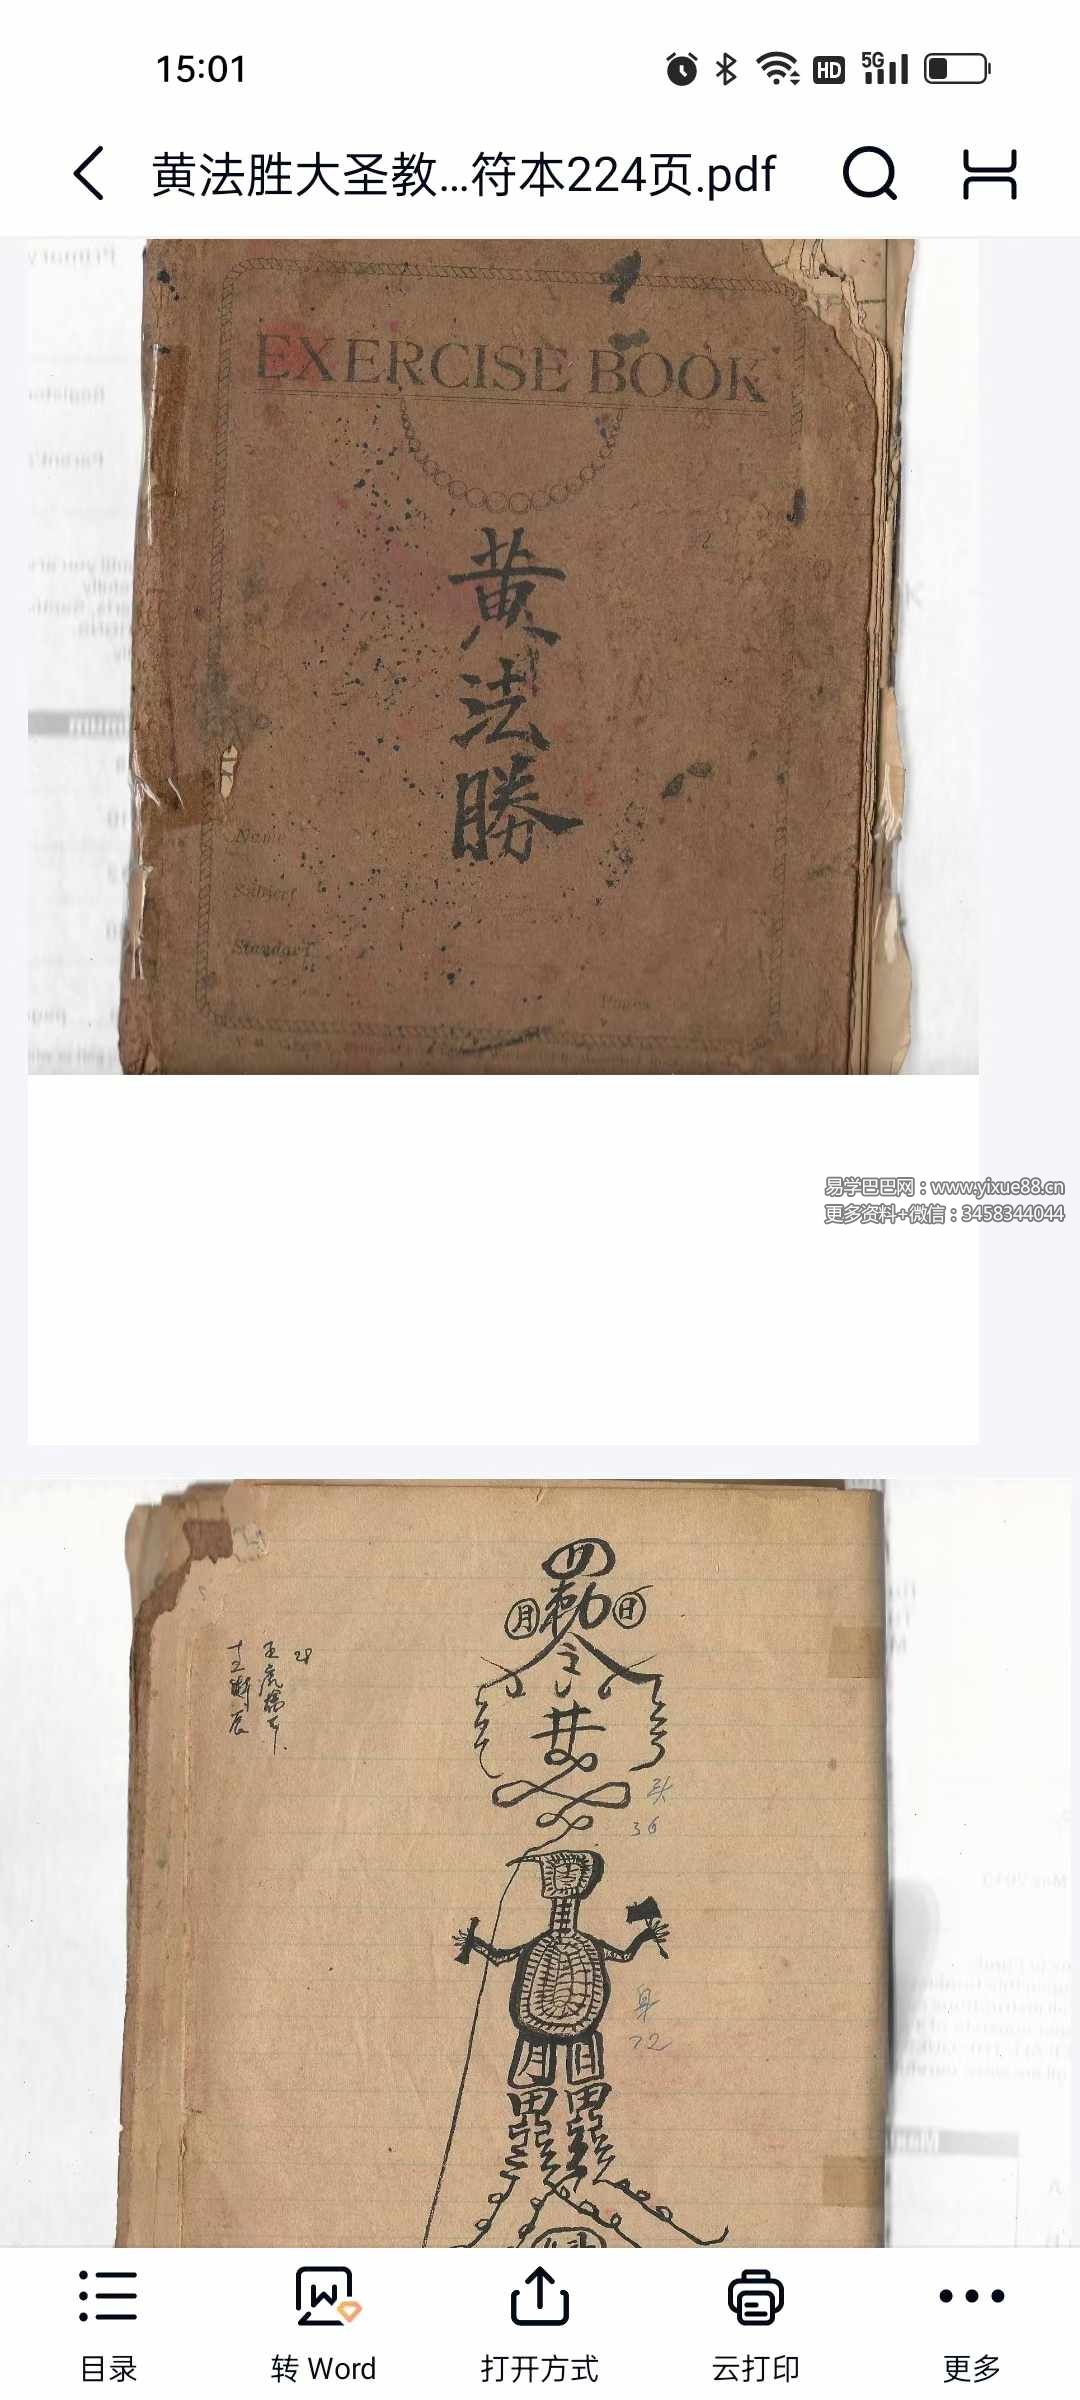 15:01
HD 5G
黄法胜大圣教...符本224页.pdf
EXERCISE BOOK
黄
法
勝
Name
Subject
Standard
易学巴巴网：www.yixue88.cn
更多资料+微信：3458344044
月 勅 日
令
井
头
36
身
72
月 日
田 田
目录
转 Word
打开方式
云打印
更多